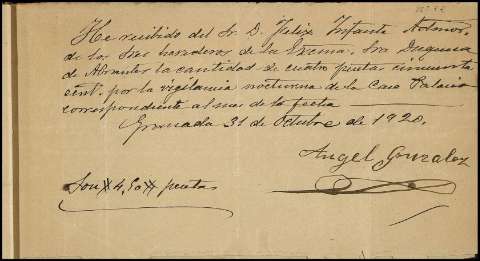 He recibido del Sr. D. Felix Infante Admor.
de los Sres herederos de la Excma. Sra Duquesa
de Abrantes la cantidad de cuatro pesetas cincuenta
cent. por la vigilancia nocturna de la Casa Palacio
correspondiente al mes de la fecha
Granada 31 de Octubre de 1920.
Angel Gonzalez
Son # 4,50 # pesetas